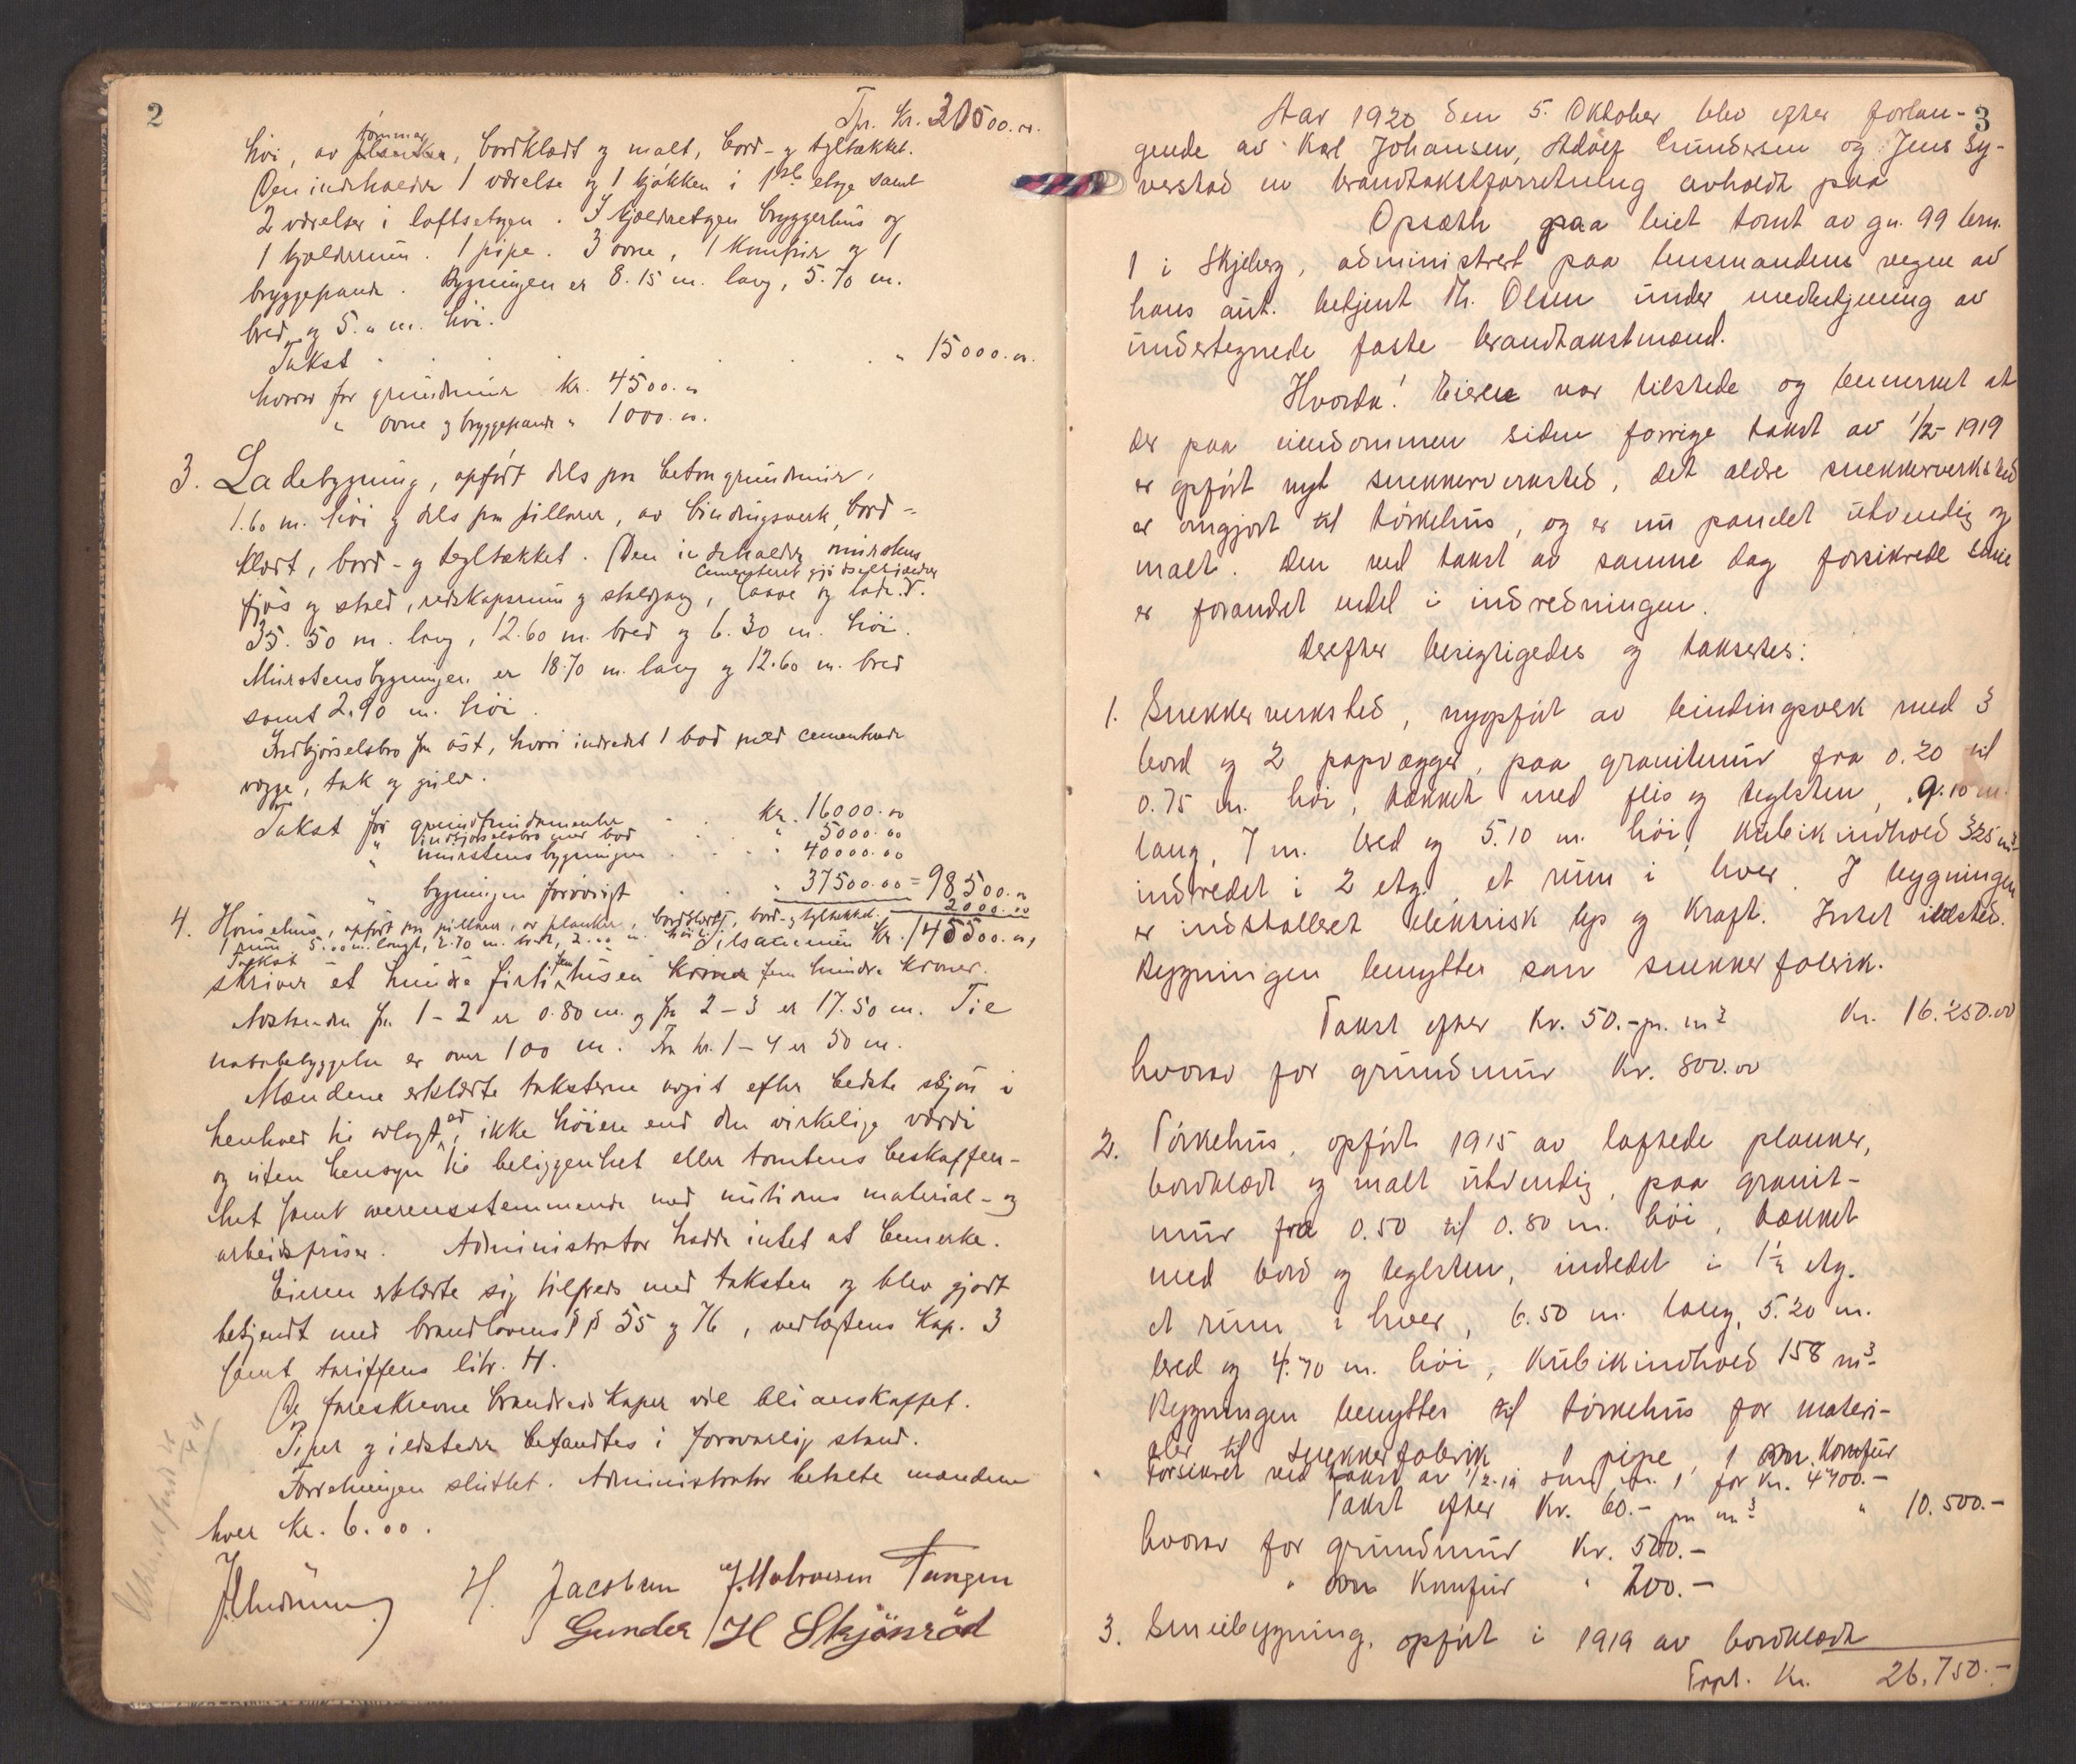 2
Tpr. kr. 30500.00.
tømmer
höi, av planker, bordklædt og malt, bord- og tgltækket.
Den indeholder 1 værelse og 1 kjøkken i 1ste etage samt
2 værelser i loftsetagen. I kjelderetagen bryggerhus og
1 kjelderrum. 1 pipe. 3 ovne, 1 komfur og 1
bryggepande. Bygningen er 8.15 m. lang, 5.70 m.
bred og 5. m. höi.
Takst . . . . . " 15000.00.
hvorav for grundmur kr. 4500.00
" ovne og bryggepande " 1000.00.
3. Ladebygning, opført dels paa betongrundmur,
1.60 m. höi og dels paa pillarer, av bindingsverk, bord-
klædt, bord- og tegltækket. Den indeholder murstens
cementeret gjødselkjelder
fjøs og stald, redskapsrum og staldgang, laave og lade.
35.50 m. lang, 12.60 m. bred og 6.30 m. höi.
Murstensbygningen er 18.70 m. lang og 12.60 m. bred
samt 2.90 m. höi.
Indkjörselsbro fra öst, hvori indredet 1 bod med cementerede
vægge, tak og gulv.
Takst for grundfundamenter . . kr. 16000.00
" indkjörselsbro med bod . . " 5000.00
" murstensbygningen . . . " 40000.00
" bygningen forövrigt . . " 37500.00 = 98500.00
4. Hönsehus, opført paa pillarer, av planker, bordklædt, bord- og tgltækket.
1 rum, 5.00 m. langt, 2.70 m. bredt, 2.00 m. höit.
Takst 2000.00
Tilsammen kr. 145500.00,
skriver et hundre firti fem tusen kroner fem hundre kroner.
Avstanden fra 1-2 er 0.80 m. og fra 2-3 er 17.50 m. Til
nabobebyggelse er over 100 m. Fra nr. 1-4 er 50 m.
Mændene erklærte taksterne avgit efter bedste skjön i
henhold til avlagt ed, ikke höiere end den virkelige værdi
og uten hensyn til beliggenhet eller tomtens beskaffen-
het samt overensstemmende med nutidens material- og
arbeidspriser. Administrator hadde intet at bemerke.
Eieren erklærte sig tilfreds med taksten og blev gjort
bekjendt med brandlovens §§ 55 og 76, vedtægtens kap. 3
samt tariffens litr. H.
De foreskrevne brandredskaper vil bli anskaffet.
Piper og ildsteder befandtes i forsvarlig stand.
Forretningen sluttet. Administrator betalte mændene
hver kr. 6.00.
H. Jacobsen J. Halvorsen Tangen
Gunder H Skjönröd
3
Aar 1920 den 5. Oktober blev efter forlan-
gende av Karl Johansen, Adolf Gundersen og Jens Sy-
verstad en brandtakstforretning avholdt paa
Opsæth paa leiet tomt av gn. 99 brn.
1 i Skjeberg, administrert paa lensmandens vegne av
hans aut. betjent Th. Olsen under medbetjening av
undertegnede faste brandtakstmænd.
Hvorda! Eierne var tilstede og bemerket at
der paa eiendommen siden forrige takst av 1/2-1919
er opført nyt snekkerverksted, det ældre snekkerverksted
er omgjort til törkehus, og er nu panelet utvendig og
malt. Den ved takst av samme dag forsikrede smie
er forandret endel i indredningen.
Derefter besigtigedes og taksertes:
1. Snekkerverksted, nyopført av bindingsverk med 3
bord og 2 papvægger, paa granitmur fra 0.20 til
0.75 m. höi, tækket med flis og teglsten, 9.10 m.
lang, 7 m. bred og 5.10 m. höi, kubikindhold 325 m3.
indredet i 2 etg. et rum i hver. I bygningen
er indstalleret elektrisk lys og kraft. Intet ildsted.
Bygningen benyttes som snekkerfabrik.
Takst efter kr. 50.- pr. m3 kr. 16.250.00
hvorav for grundmur kr. 800.00
2. Törkehus, opført 1915 av laftede planker,
bordklædt og malt utvendig, paa granit-
mur fra 0.50 til 0.80 m. höi, tækket
med bord og teglsten, indredet i 1½ etg.
et rum i hver, 6.50 m. lang, 5.20 m.
bred og 4.70 m. höi, kubikindhold 158 m3.
Bygningen benyttes til törkehus for materi-
aler til snekkerfabrik 1 pipe, 1 komfur
Forsikret ved takst av 1/2-19 som nr. 1 for kr. 4700.-
Takst efter kr. 60.- pr m3 " 10.500.-
hvorav for grundmur kr. 500.-
" komfur " 200.-
3. Smiebygning, opført i 1919 av bordklædt
Trpt. kr. 26.750.-